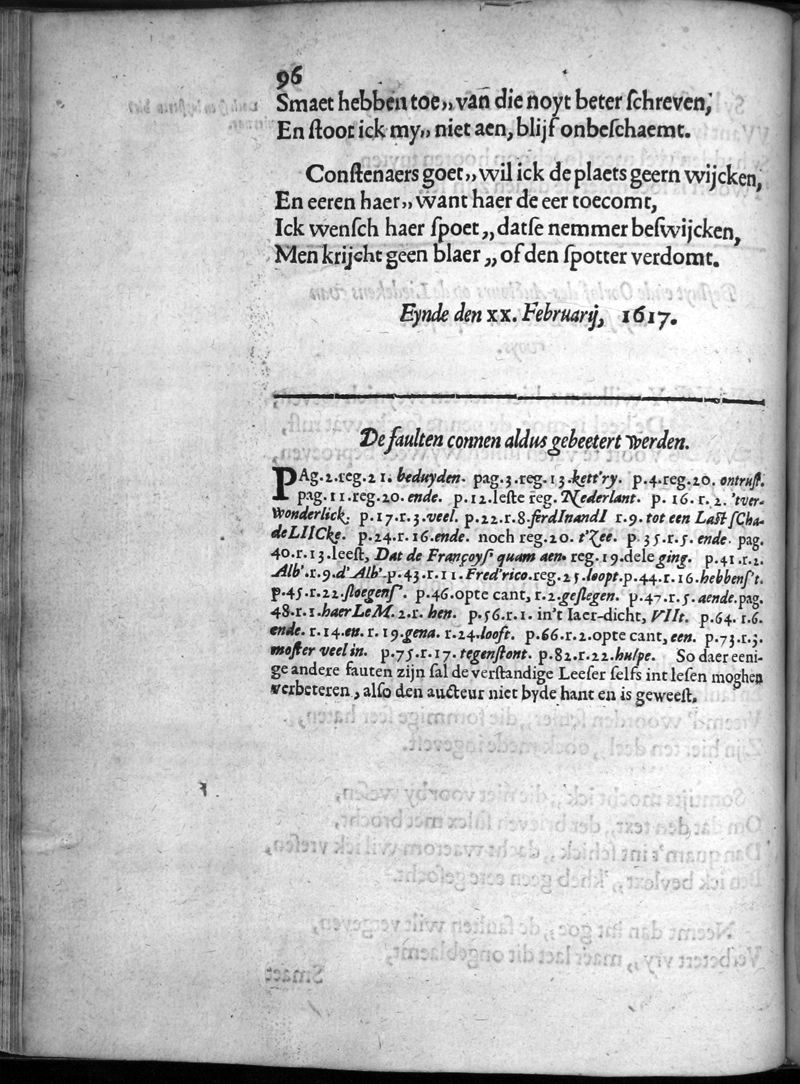 96
Smaet hebben toe„ van die noyt beter ſchreven,
En ſtoot ick my„ niet aen, blijf onbeſchaemt.
Conſtenaers goet„ wil ick de plaets geern wijcken,
En eeren haer„ want haer de eer toecomt,
Ick wenſch haer ſpoet„ datſe nemmer beſwijcken,
Men krijcht geen blaer„ of den ſpotter verdomt.
Eynde den XX. Februarij, 1617.
De faulten connen aldus gebeetert werden.
PAg.2.reg.21. beduyden. pag.3.reg.13.kett'ry. p.4.reg.20. ontruſt.
pag.11.reg.20. ende. p.12.leſte reg. Nederlant. p. 16. r. 2. 'tver-
wonderlick. p.17.r.3.veel. p.22.r.8.firdInandI r.9. tot een Laſt ſCha-
deLIICke. p.24.r.16.ende. noch reg.20. t'Zee. p.35.r.5. ende. pag.
40.r.13.leeſt, Dat de Françoyſ quam aen. reg.19.dele ging. p.41.r.2.
Alb'.r.9.d'Alb'.p.43.r.11.Fred'rico.reg.25.loopt.p.44.r.16.hebbenſ't.
p.45.r.22.ſloegenſ'. p.46.opte cant, r.2.geſlegen. p.47.r.5.aende.pag.
48.r.1.haerLeM.2.r. hen. p.56.r.1. in't Iaer-dicht, VIIt. p.64. r.6.
ende. r.14.en. r.19.gena. r.24.looft. p.66.r.2.opte cant, een. p.73.r.3.
moſter veel in. p.75.r.17. tegenſtont. p.82.r.22.hulpe. So daer eeni-
ge andere fauten zijn ſal de verſtandige Leeſer ſelfs int leſen moghen
verbeteren, alſo den aucteur niet byde hant en is geweeſt.